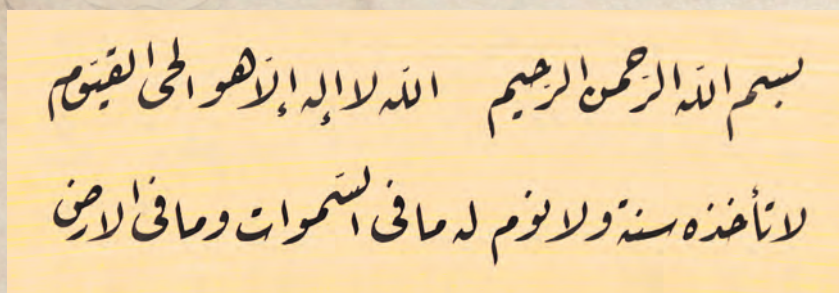 بسم الله الرحمن الرحيم الله لا إله إلا هو الحي القيّوم
لا تأخذه سنة ولا نوم له ما في السّموات وما في الارض